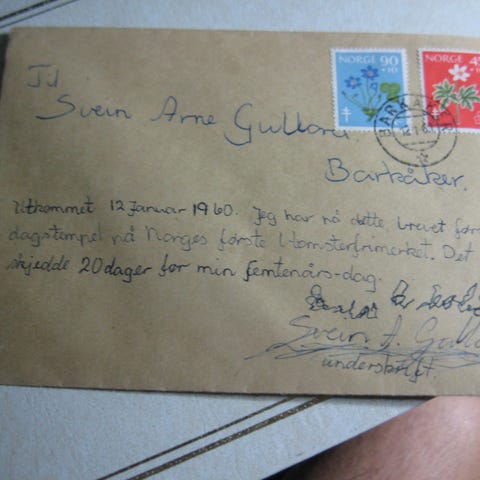 NORGE 90
+10
NORGE 45
Til
Svein Arne Gullord.
BARKÅKER
12.1.60
Barkåker.
Utkommet 12 Januar 1960. Jeg har på dette brevet før
dagstempel på Norges første blomsterfrimerket. Det
skjedde 20 dager før min femtenårs-dag.
Svein A. Gullo
underskrift.